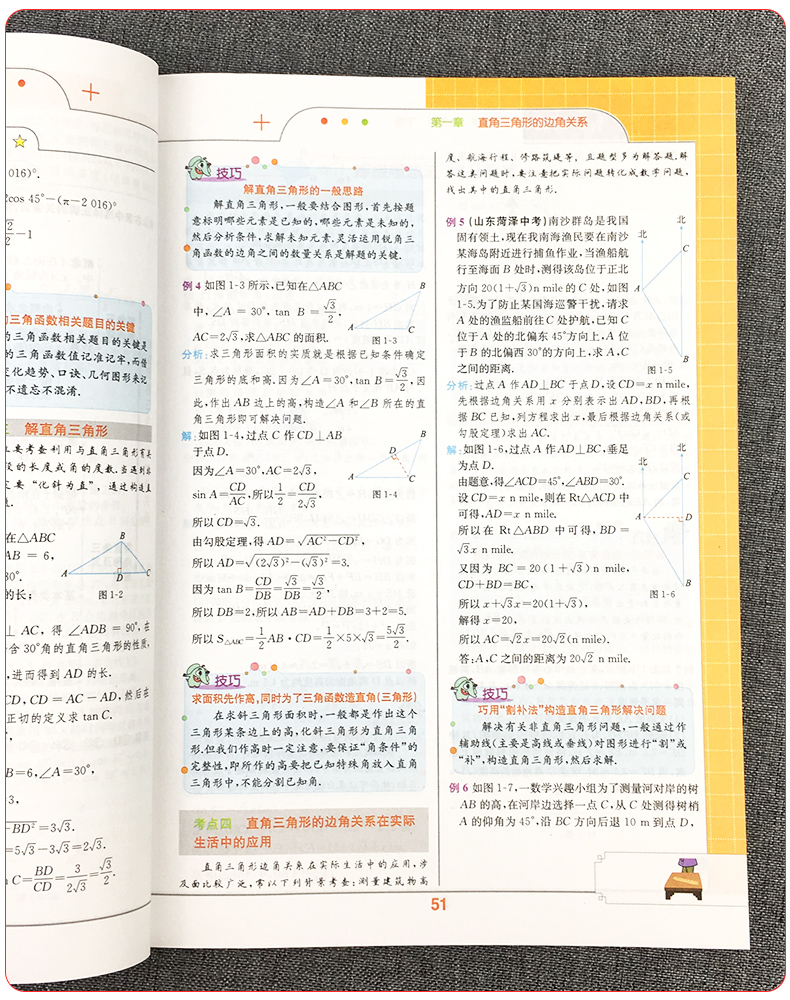 016)°.
2cos 45°-(π-2 016)°
√2/2-1
的三角函数相关题目的关键
的三角函数相关题目的关键是
的三角函数值记准记牢,而借
变化趋势、口诀、几何图形来记
不遗忘不混淆.
解直角三角形
主要考查利用与直角三角形有关
的长度或角的度数.当遇到斜
要“化斜为直”,通过构造直
在△ABC
AB = 6,
30°.
的长;
B
A
D
C
图 1-2
⊥ AC, 得 ∠ADB = 90°,在
含 30°角的直角三角形的性质,
,进而得到 AD 的长.
CD,CD = AC − AD,然后在
正切的定义求 tan C.
B=6,∠A=30°,
3,
BD²=3√3.
=5√3-3√3=2√3.
C=BD/CD=3/2√3=√3/2.
第一章 直角三角形的边角关系
技巧
解直角三角形的一般思路
解直角三角形,一般要结合图形,首先按题
意标明哪些元素是已知的,哪些元素是未知的,
然后分析条件,求解未知元素.灵活运用锐角三
角函数的边角之间的数量关系是解题的关键.
例 4 如图 1-3 所示,已知在△ABC
中,∠A = 30°, tan B = √3/2,
AC=2√3,求△ABC 的面积.
B
A
C
图 1-3
分析:求三角形面积的实质就是根据已知条件确定
三角形的底和高.因为∠A=30°,tan B=√3/2,因
此,作出 AB 边上的高,构造∠A 和∠B 所在的直
角三角形即可解决问题.
解:如图 1-4,过点 C 作 CD⊥AB
于点 D.
因为∠A=30°,AC=2√3,
sin A=CD/AC,所以1/2=CD/2√3,
B
D
A
C
图 1-4
所以 CD=√3.
由勾股定理,得 AD=√(AC²-CD²),
所以 AD=√((2√3)²-(√3)²)=3.
因为 tan B=CD/DB=√3/DB=√3/2,
所以 DB=2,所以 AB=AD+DB=3+2=5.
所以 S△ABC=1/2AB·CD=1/2×5×√3=5√3/2.
技巧
求面积先作高,同时为了三角函数造直角(三角形)
在求斜三角形面积时,一般都是作出这个
三角形某条边上的高,化斜三角形为直角三角
形.但我们作高时一定注意,要保证“角条件”的
完整性,即所作的高要把已知特殊角放入直角
三角形中,不能分割已知角.
考点四 直角三角形的边角关系在实际
生活中的应用
直角三角形边角关系在实际生活中的应用,涉
及面比较广泛,常以下列背景考查:测量建筑物高
度、航海行程、修路筑堤等,且题型多为解答题.解
答这类问题时,要注意把实际问题转化成数学问题,
找出其中的直角三角形.
例 5 (山东菏泽中考)南沙群岛是我国
固有领土,现在我南海渔民要在南沙
某海岛附近进行捕鱼作业,当渔船航
行至海面 B 处时,测得该岛位于正北
方向 20(1+√3)n mile 的 C 处,如图
1-5.为了防止某国海巡警干扰,请求
A 处的渔监船前往 C 处护航,已知 C
位于 A 处的北偏东 45°方向上,A 位
于 B 的北偏西 30°的方向上,求 A,C
之间的距离.
北
北
C
A
B
图 1-5
分析:过点 A 作 AD⊥BC 于点 D,设 CD=x n mile,
先根据边角关系用 x 分别表示出 AD,BD,再根
据 BC 已知,列方程求出 x,最后根据边角关系(或
勾股定理)求出 AC.
解:如图 1-6,过点 A 作 AD⊥BC,垂足
为点 D.
由题意,得∠ACD=45°,∠ABD=30°.
设 CD=x n mile,则在 Rt△ACD 中
可得,AD=x n mile.
所以在 Rt△ABD 中可得, BD =
√3x n mile.
又因为 BC = 20(1+√3) n mile,
CD+BD=BC,
所以 x+√3x=20(1+√3),
解得 x=20,
所以 AC=√2x=20√2(n mile).
答:A,C 之间的距离为 20√2 n mile.
北
北
C
A
D
B
图 1-6
技巧
巧用“割补法”构造直角三角形解决问题
解决有关非直角三角形问题,一般通过作
辅助线(主要是高线或垂线)对图形进行“割”或
“补”,构造直角三角形,然后求解.
例 6 如图 1-7,一数学兴趣小组为了测量河对岸的树
AB 的高,在河岸边选择一点 C,从 C 处测得树梢
A 的仰角为 45°,沿 BC 方向后退 10 m 到点 D,
51